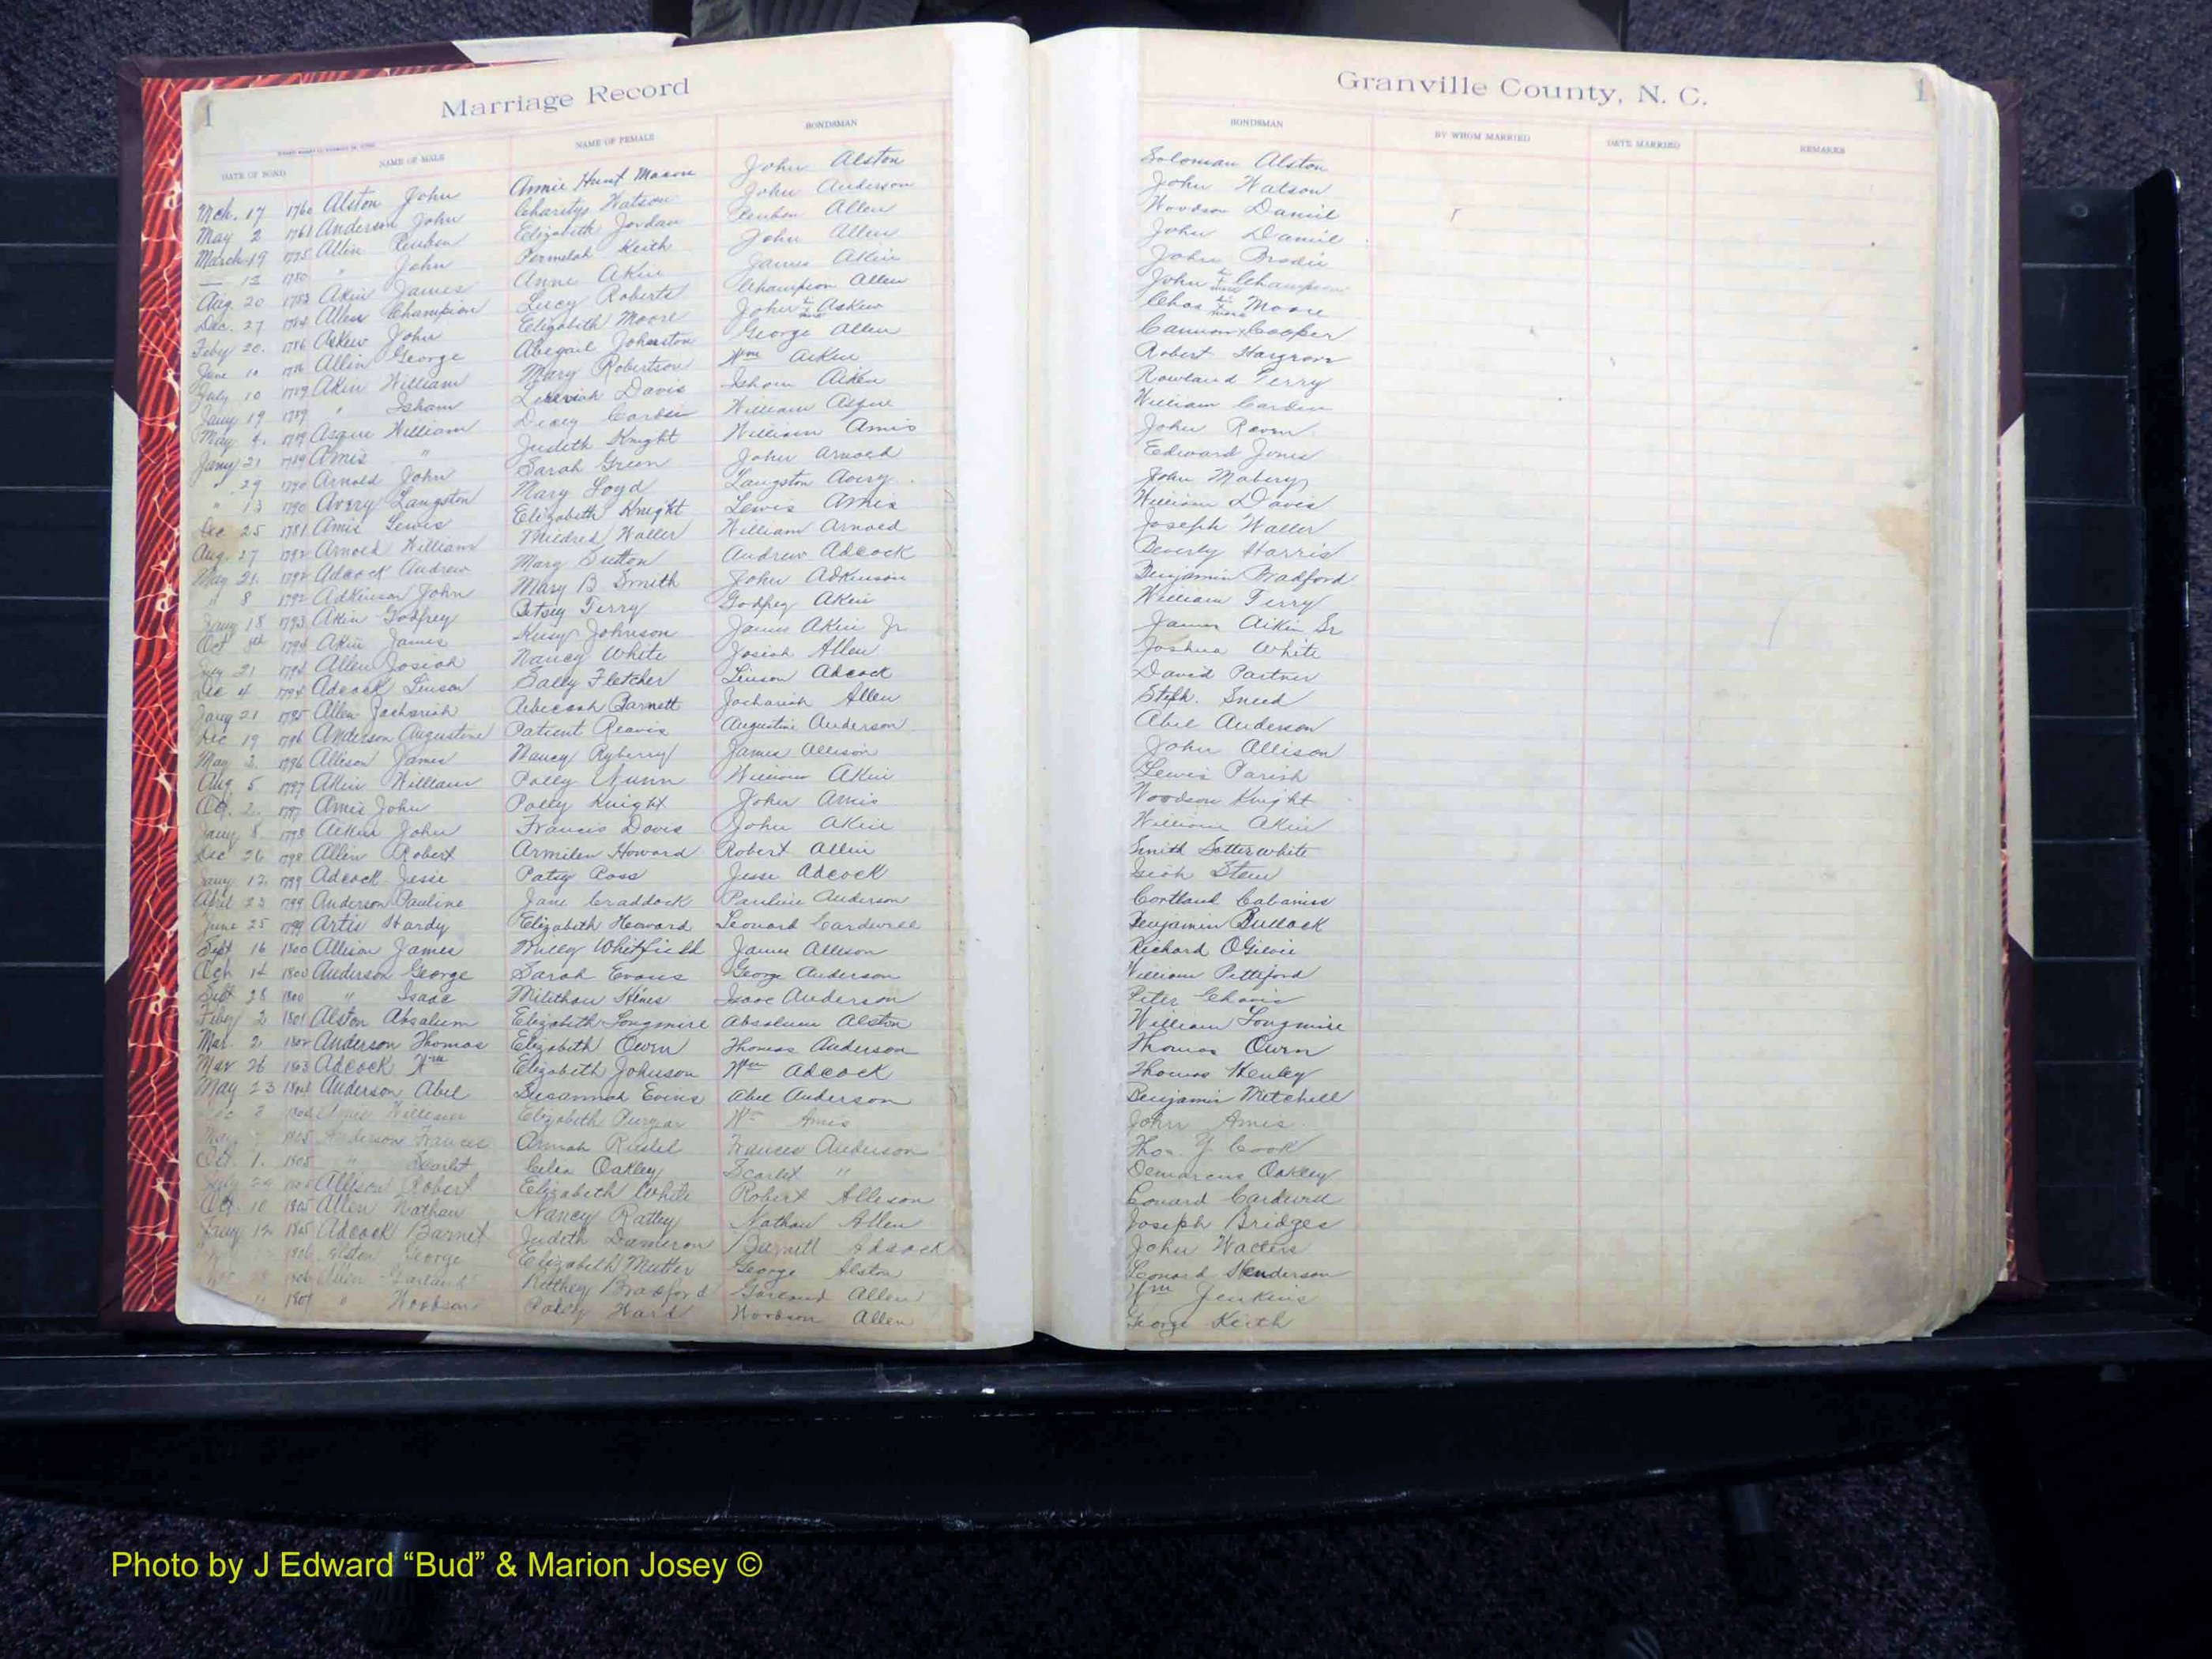 1
Marriage Record
DATE OF BOND NAME OF MALE NAME OF FEMALE BONDSMAN
Mch. 17 1760 Alston John Annie Hunt Macon John Alston
May 2 1761 Anderson John Charity Watson John Anderson
March 19 1775 Allen Reuben Elizabeth Jordan Reuben Allen
— 12 1780 " John Permelah Keith John Allen
Aug. 20 1783 Akin James Anne Akin James Akin
Dec. 27 1784 Allen Champion Lucy Roberts Champion Allen
Feby 20. 1786 Askew John Elizabeth Moore John his mark Askew
June 10 1786 Allin George Abegail Johnston George Allen
July 10 1789 Akin William Mary Robertson Wm Aiken
Jany 19 1789 " Isham Davis Isham Aiken
May 4. 1789 Asque William Dicey William Asque
Jany 21 1789 Amis " Judeth Knight William Amis
" 29 1790 Arnold John Sarah Green John Arnold
" 13 1790 Avery Langston Mary Loyd Langston Avery
Dec 25 1781 Amis Lewis Elizabeth Knight Lewis Amis
Aug. 27 1792 Arnold William Mildred Waller William Arnold
May 21. 1792 Adcock Andrew Mary Sutton Andrew Adcock
" 8 1792 Adkinson John Mary B Smith John Adkinson
Jany 18 1793 Akin Godfrey Betsey Terry Godfrey Akin
Oct 1794 Akin James Kisy Johnson James Akin Jr
July 21 1794 Allen Josiah Nancy White Josiah Allen
Dec 4 1794 Adcock Linson Sally Fletcher Linson Adcock
Jany 21 1795 Allen Zachariah Rebeccah Barnett Zachariah Allen
Dec 19 1796 Anderson Augustine Patient Reavis Augustine Anderson
May 2. 1796 Allison James Nancy Ryberry James Allison
Aug. 5 1797 Akin William Polly Nunn William Akin
Oct. 2. 1797 Amis John Polly Knight John Amis
Jany 8. 1798 Aikin John Francis Davis John Akin
Dec 26 1798 Allin Robert Armilen Howard Robert Allin
Jany 12. 1799 Adcock Jesse Patsy Ross Jesse Adcock
April 23 1799 Anderson Pauline Jane Craddock Pauline Anderson
June 25 1799 Artis Hardy Elizabeth Howard Leonard Cardwell
Sept 16 1800 Allison James Milly Whitfield James Allison
Oct 14 1800 Anderson George Sarah Evans George Anderson
Sept 28 1800 " Isaac Hines Isaac Anderson
Feby 2 1801 Alston Absalum Elizabeth Longmire Absalum Alston
Mar. 2. 1802 Anderson Thomas Elizabeth Owen Thomas Anderson
Mar 26 1803 Adcock Wm Elizabeth Johnson Wm Adcock
May 23 1804 Anderson Abel Susannah Evens Abel Anderson
Dec 2 William Elizabeth Puryar Wm Amis
1805 Anderson Frances Annah Frances Anderson
Oct 1. 1805 " Scarlet Celia Oakley Scarlet "
Allison Robert Elizabeth White Robert Allison
Oct. 10 1805 Allen Nathan Nancy Ratley Nathan Allen
Jany 12 1805 Adcock Barnet Judeth Dameron Barnett Adcock
Alston George Elizabeth Mutter George Alston
Allen Garland Bradford Garland Allen
" 1807 " Woodson Ward Woodson Allen
Granville County, N. C.
1
BONDSMAN BY WHOM MARRIED DATE MARRIED REMARKS
Soloman Alston
John Watson
Woodson Daniel
John Daniel
John Brodie
John his mark Champion
Chas his mark Moore
Cannon Cooper
Robert Hargrove
Rowland Terry
William
John Raven
Edward Jones
John Mabery
William Davis
Joseph Waller
Beverly Harris
Benjamin Bradford
William Terry
James Aikin Sr
Joshua White
David Partner
Steph. Sneed
Abel Anderson
John Allison
Lewis Parish
Woodson Knight
William Akin
Smith Satterwhite
Stem
Cortland Cabaniss
Benjamin Bullock
Richard OGilvie
William Pettiford
Peter Chavis
William Longmire
Thomas Owen
Thomas Henley
Benjamin Mitchell
John Amis
Thos. Y Cook
Demarcus Oakley
Lonard Cardwell
Joseph Bridges
John Walters
Leonard Henderson
Wm Jenkins
George Keith
Photo by J Edward “Bud” & Marion Josey ©